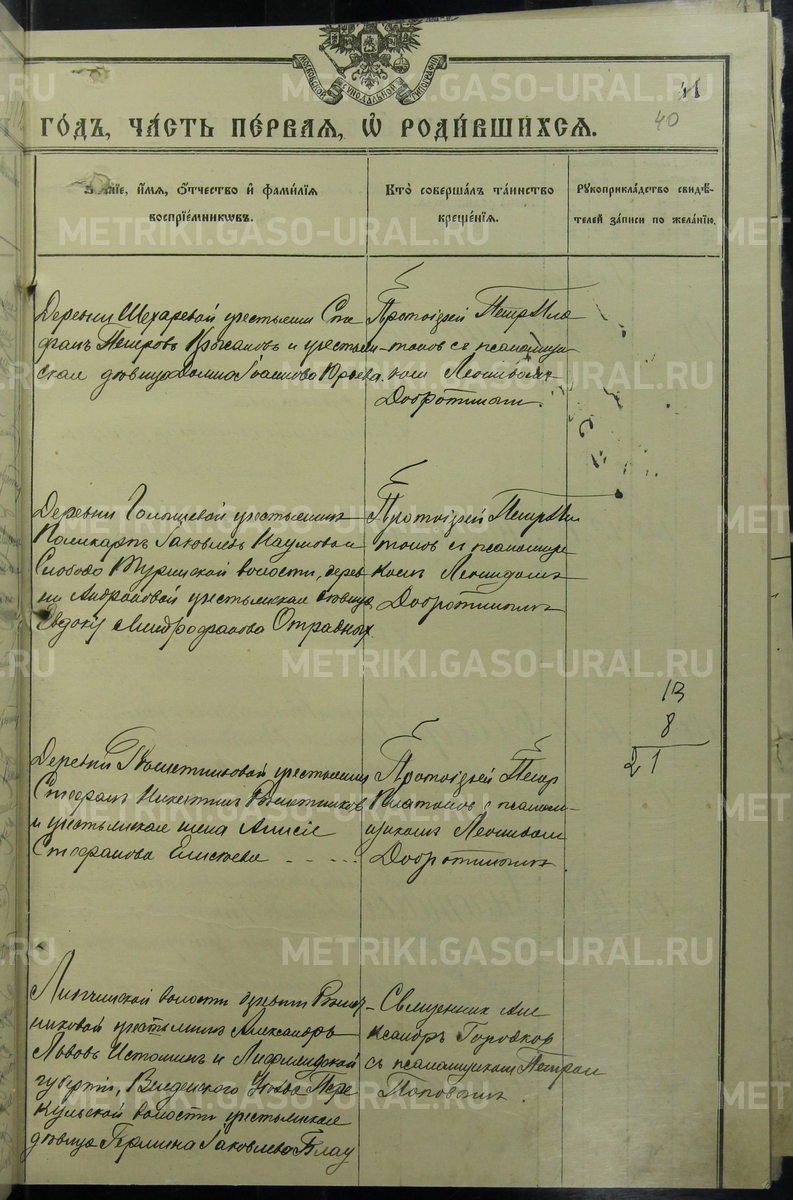 41
40
годъ, часть первая, ѡ родившихся.
Званіе, имя, отчество и фамилія воспріемниковъ.
Кто совершалъ таинство крещенія.
Рукоприкладство свидѣтелей записи по желанію.
Деревни крестьянинъ Сте
фанъ Петровъ и крестьян
ская дѣвица Домна Іоаннова Юрьева.
Протоіерей Петръ Пла
тоновъ съ псаломщи
комъ Леонидомъ
Добротинымъ.
Деревни крестьянинъ
Поликарпъ Іаковлевъ Наумовъ и
Слободо Туринской волости, дерев
ни Андроновой крестьянская дѣвица
Евдокія Митрофанова Отрадныхъ
Протоіерей Петръ Пла
тоновъ съ псаломщи
комъ Леонидомъ
Добротинымъ
13
8
21
Деревни крестьянинъ
Стефанъ Никитинъ
и крестьянская жена Анисія
Стефанова Елисѣева
Протоіерей Петръ
Платоновъ съ псалом-
щикомъ Леонидомъ
Добротинымъ.
Липчинской волости деревни
крестьянинъ Александръ
Львовъ Истоминъ и Лифляндской
губерніи, Венденскаго Уѣзда
волости крестьянская
дѣвица Гермина Іаковлева Блау
Священникъ Але
ксандръ Городков
съ псаломщикомъ Петромъ
Поповымъ.
METRIKI.GASO-URAL.RU